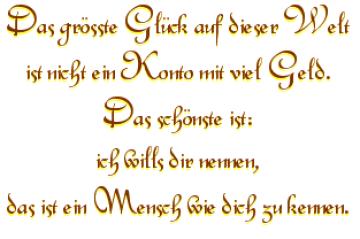 Das grösste Glück auf dieser Welt
ist nicht ein Konto mit viel Geld.
Das schönste ist:
ich wills dir nennen,
das ist ein Mensch wie dich zu kennen.